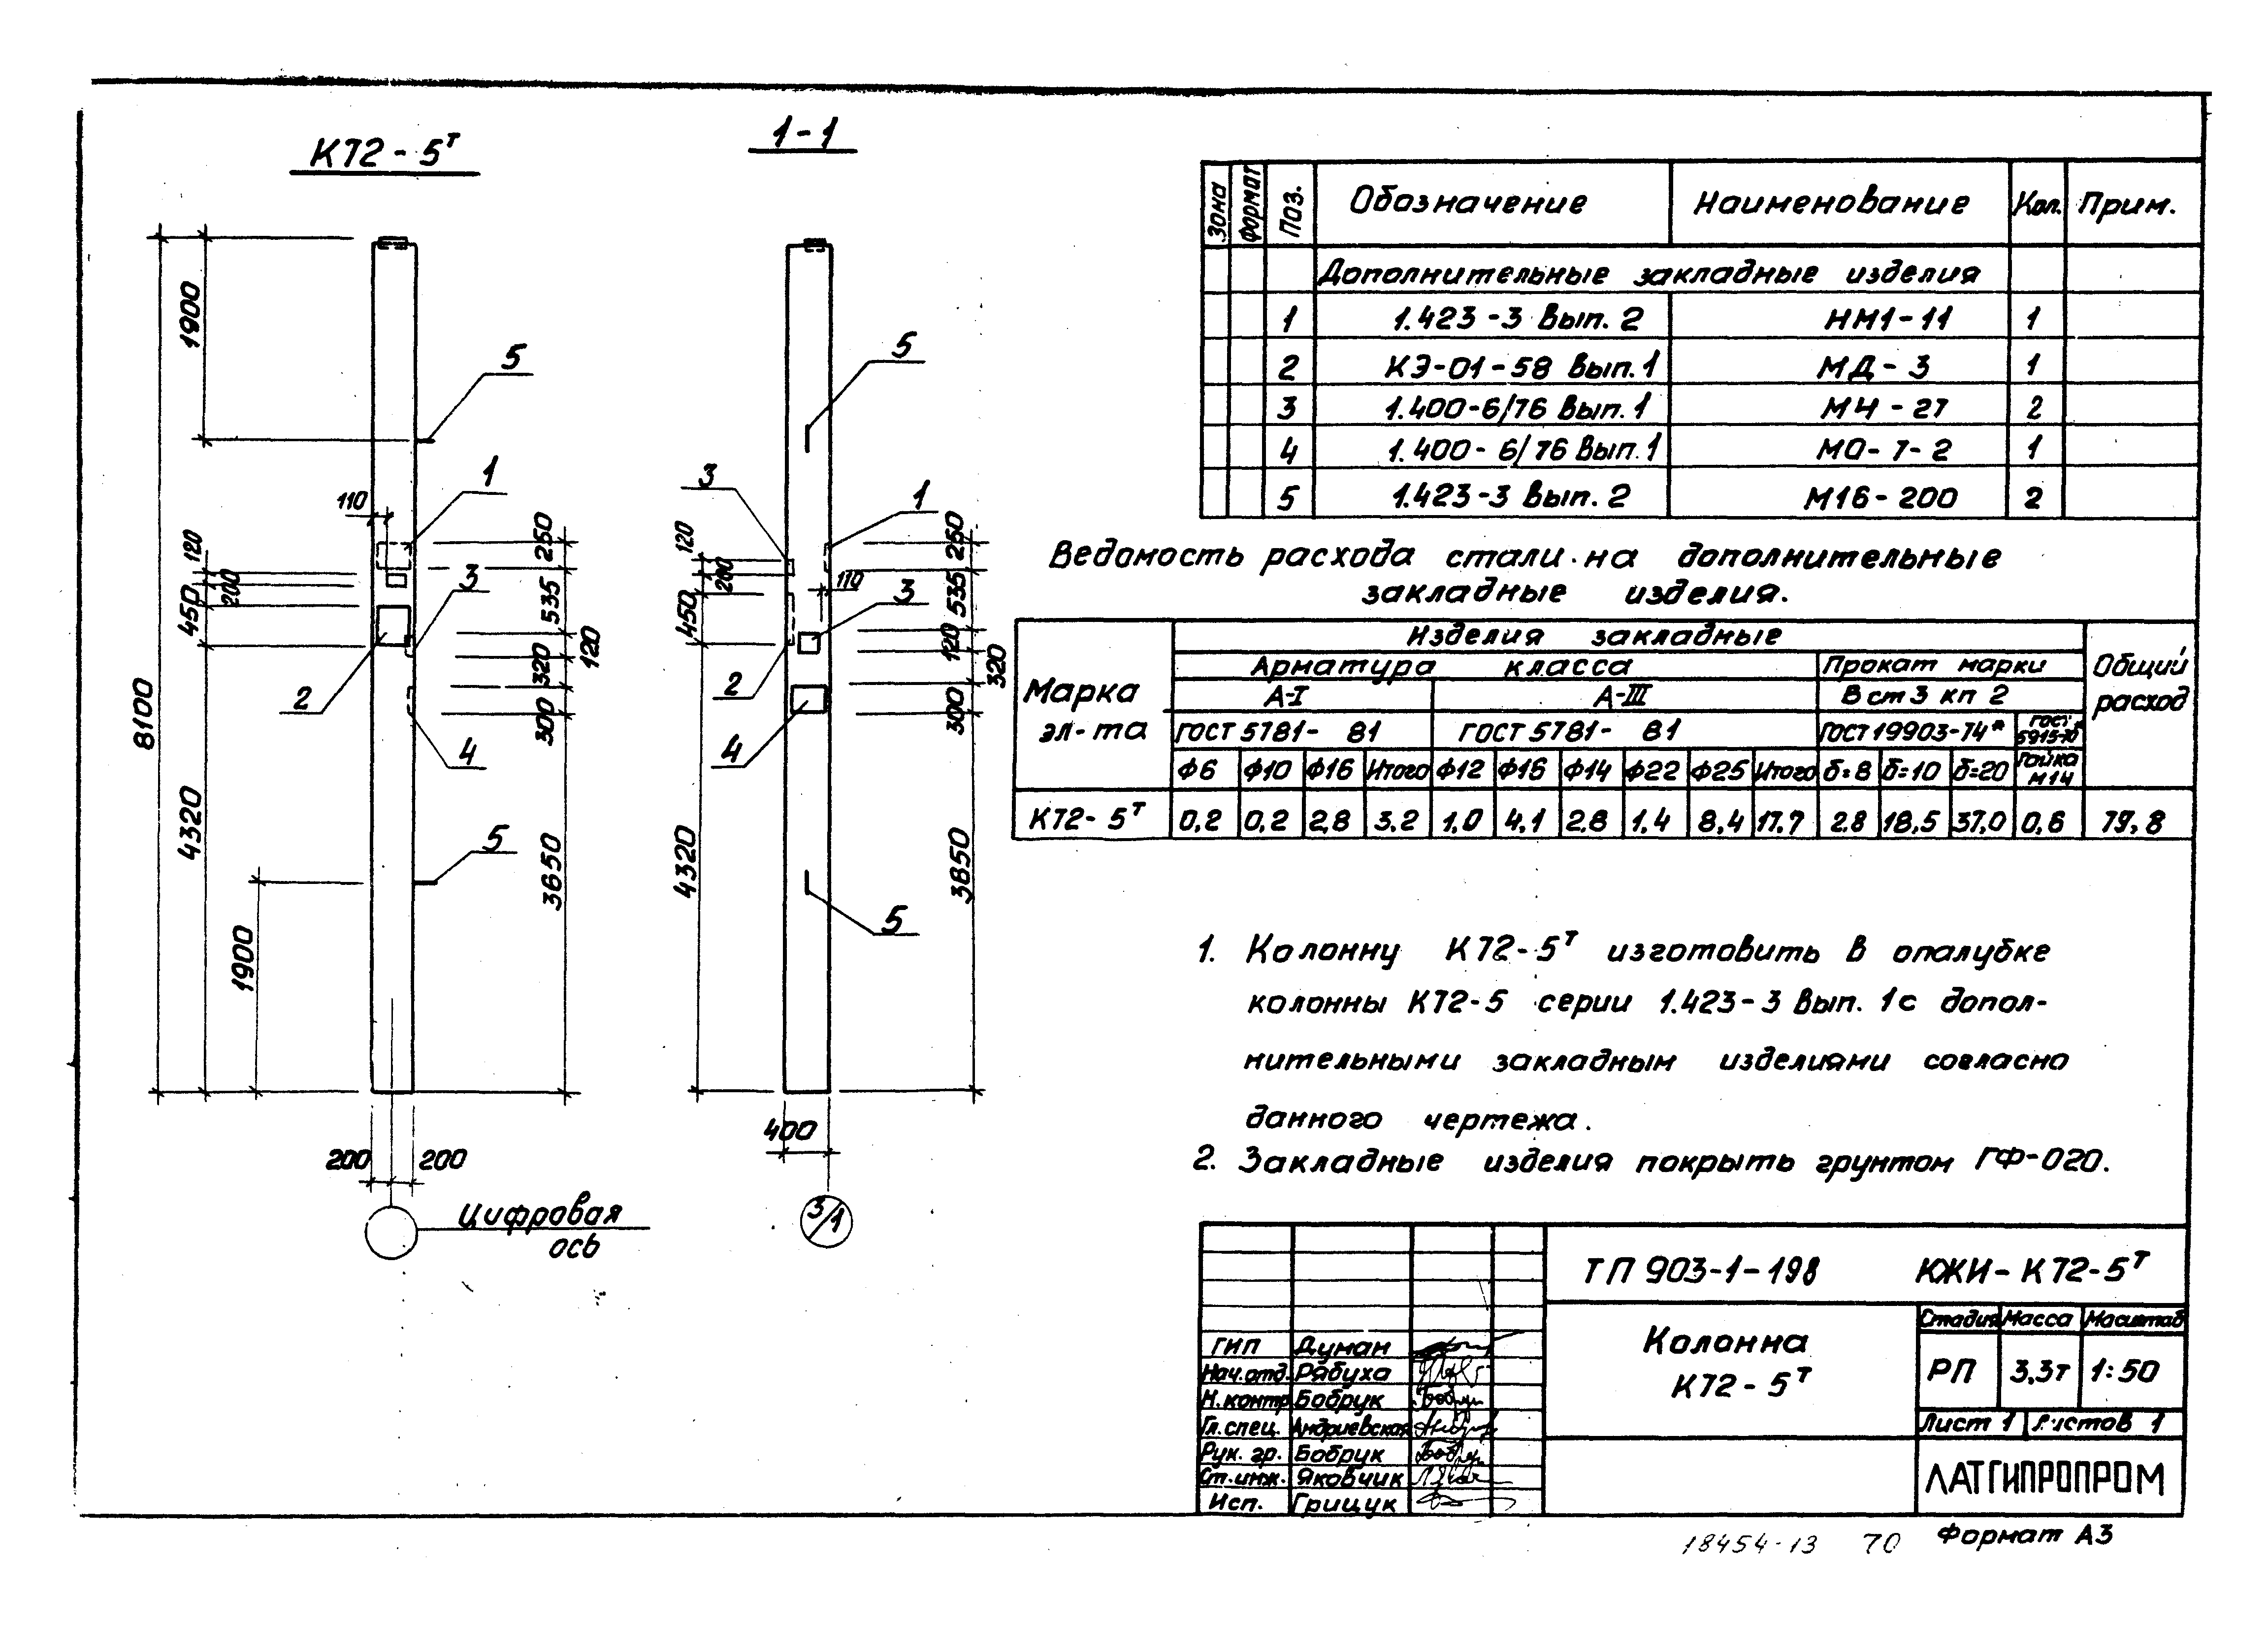 К72-5Т
1-1
8100
1900
5
1
110
120
200
450
3
250
535
120
320
300
2
4
4320
1900
5
3650
200 200
Цифровая
ось
5
3
1
120
200
450
110
3
250
535
120
320
300
2
4
4320
5
3850
400
3/1
Зона Формат Поз. Обозначение Наименование Кол. Прим.
Дополнительные закладные изделия
1 1.423-3 Вып. 2 НМ1-11 1
2 КЭ-01-58 Вып. 1 МД-3 1
3 1.400-6/76 Вып. 1 МН-27 2
4 1.400-6/76 Вып. 1 МО-7-2 1
5 1.423-3 Вып. 2 М16-200 2
Ведомость расхода стали на дополнительные
закладные изделия.
Марка эл-та
Изделия закладные
Общий расход
Арматура класса Прокат марки
А-I А-III Вст3 кп 2
ГОСТ 5781-81 ГОСТ 5781-81 ГОСТ 19903-74* ГОСТ 5915-70*
Ф6 Ф10 Ф16 Итого Ф12 Ф16 Ф14 Ф22 Ф25 Итого δ=8 δ=10 δ=20 Гайка М14
К72-5Т 0,2 0,2 2,8 3,2 1,0 4,1 2,8 1,4 8,4 17,7 2.8 18,5 37,0 0,6 79,8
1. Колонну К72-5Т изготовить в опалубке
колонны К72-5 серии 1.423-3 Вып. 1 с допол-
нительными закладным изделиями согласно
данного чертежа.
2. Закладные изделия покрыть грунтом ГФ-020.
ТП 903-1-198 КЖИ-К72-5Т
Колонна
К72-5Т
Стадия Масса Масштаб
РП 3,3т 1:50
Лист 1 Листов 1
ЛАТГИПРОПРОМ
ГИП Думан
Нач.отд. Рябуха
Н.контр Бобрук
Гл.спец. Андриевская
Рук. гр. Бобрук
Ст.инж. Яковчик
Исп. Грищук
18454-13 70 Формат А3